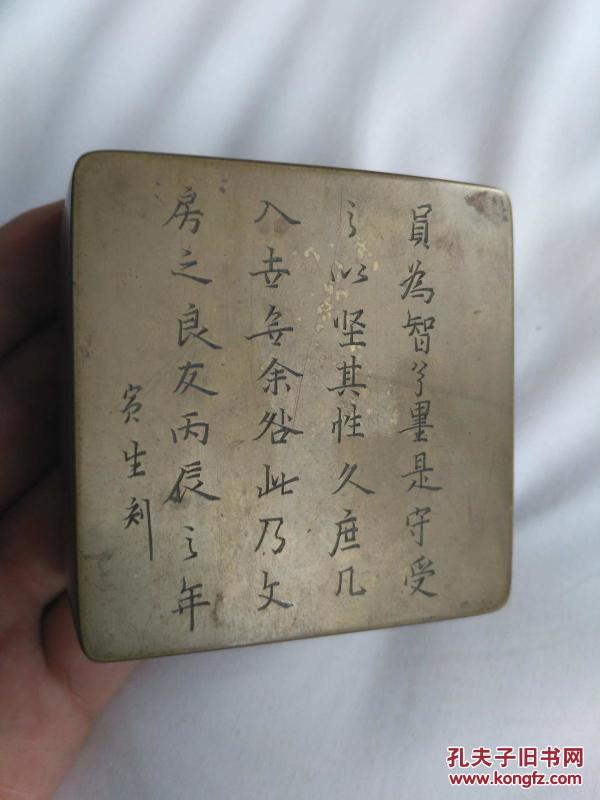 員為智兮墨是守受
之以坚其性久庶几
入世無余咎此乃文
房之良友丙辰之年
寅生刻
孔夫子旧书网
www.kongfz.com